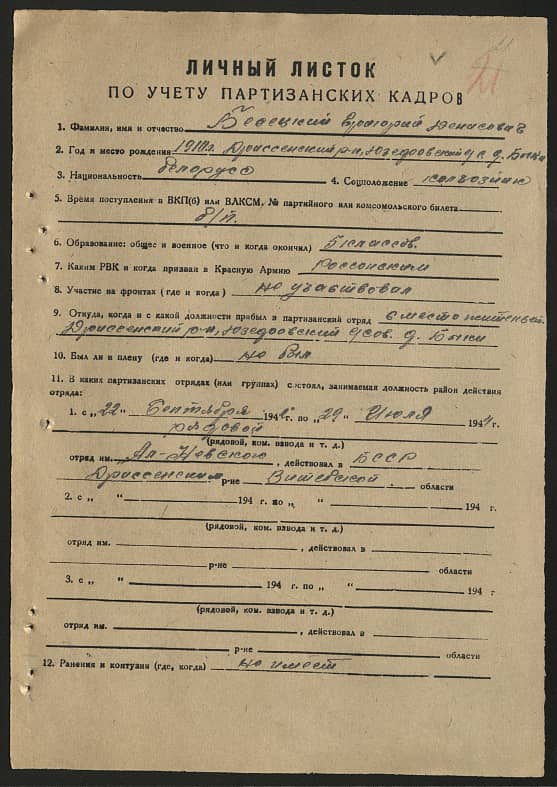 ЛИЧНЫЙ ЛИСТОК
ПО УЧЕТУ ПАРТИЗАНСКИХ КАДРОВ
1. Фамилия, имя и отчество Григорий Денисович
2. Год и место рождения Дриссенский р-н, с. д. Быки
3. Национальность белорус 4. Соцположение колхозник
5. Время поступления в ВКП(б) или ВЛКСМ, № партийного или комсомольского билета
б/п.
6. Образование: общее и военное (что и когда окончил) 5 классов.
7. Каким РВК и когда призван в Красную Армию Россонским
8. Участие на фронтах (где и когда) не участвовал
9. Откуда, когда и с какой должности прибыл в партизанский отряд с место жительст.
Дриссенский р-н, с/сов. д. Быки
10. Был ли в плену (где и когда) не был
11. В каких партизанских отрядах (или группах) состоял, занимаемая должность район действия
отряда:
1. с „22" Сентября 194 г. по „29" Июля 1944 г.
рядовой
(рядовой, ком. взвода и т. д.)
отряд им. Ал-Невского, действовал в БССР
Дриссенским р-не Витебской области
2. с „ " 194 г. по „ " 194 г.
(рядовой, ком. взвода и т. д.)
отряд им. , действовал в
р-не области
3. с „ " 194 г. по „ " 194 г
(рядовой, ком. взвода и т. д.)
отряд им. , действовал в
р-не области
12. Ранения и контузии (где, когда) не имеет